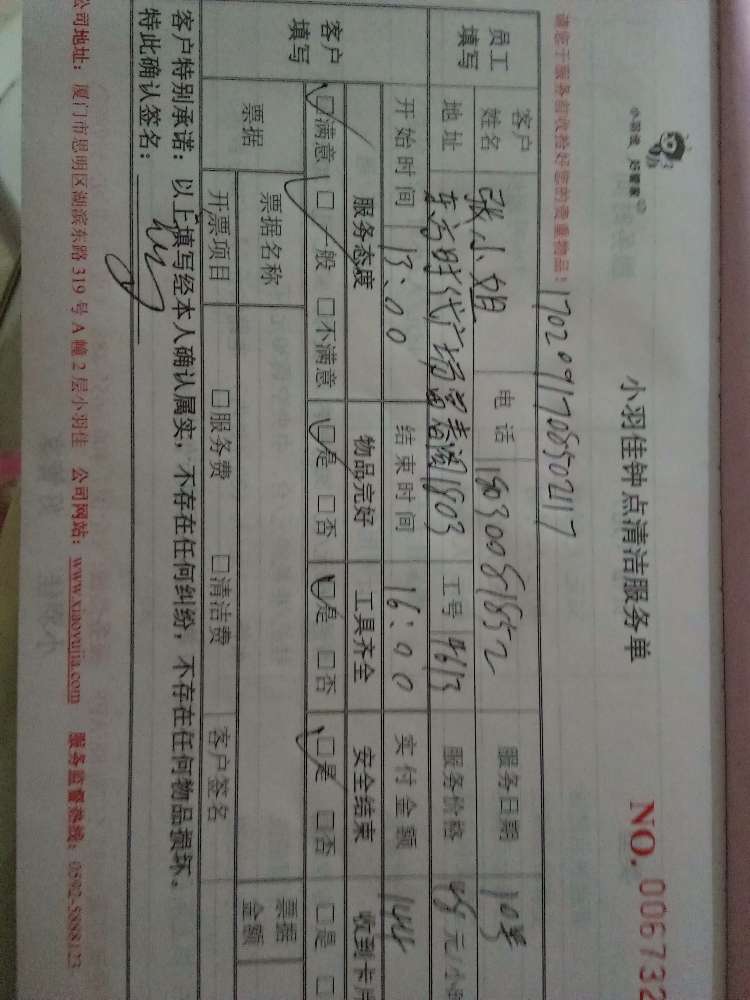 小羽佳 好管家
小羽佳钟点清洁服务单
NO. 006732
请您于服务前收拾好您的贵重物品!
170291708502117
员工填写
客户姓名 张小姐 电话 18030081852 服务日期 10号
地址 东方时代广场 1803 工号 4613 服务价格 48元/小
开始时间 13:00 结束时间 16:00 实付金额 144
客户填写
服务态度 物品完好 工具齐全 安全结束 收到卡片
☑满意 ☑一般 □不满意 ☑是 □否 ☑是 □否 ☑是 □否 □是 □
票据 票据名称 票据金额
开票项目 □服务费 □清洁费 客户签名
客户特别承诺:以上填写经本人确认属实,不存在任何纠纷,不存在任何物品损坏。
特此确认签名:
公司地址:厦门市思明区湖滨东路 319 号 A 幢 2 层小羽佳 公司网站:www.xiaoyujia.com 服务监督热线:0592-5888123